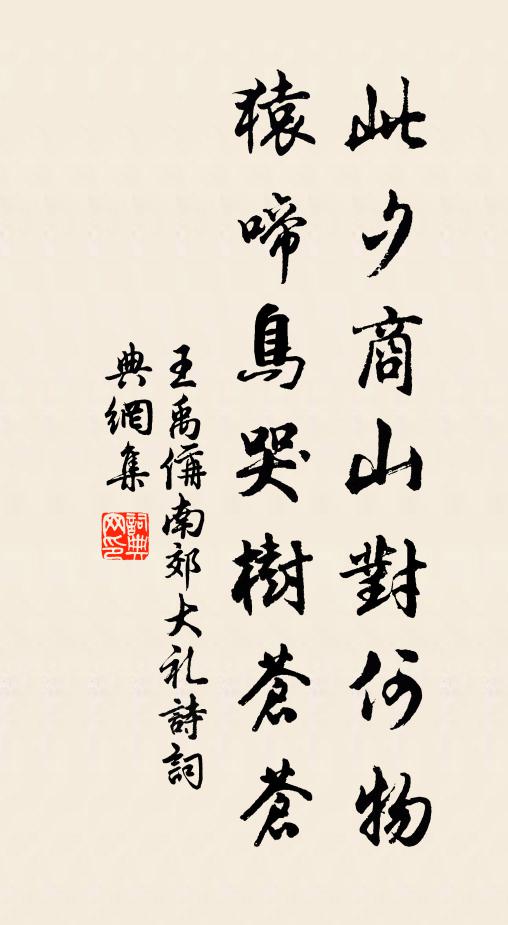 此夕商山對何物
猿啼鳥哭樹蒼蒼
王禹偁南郊大礼詩詞
典網集
詞典
网印